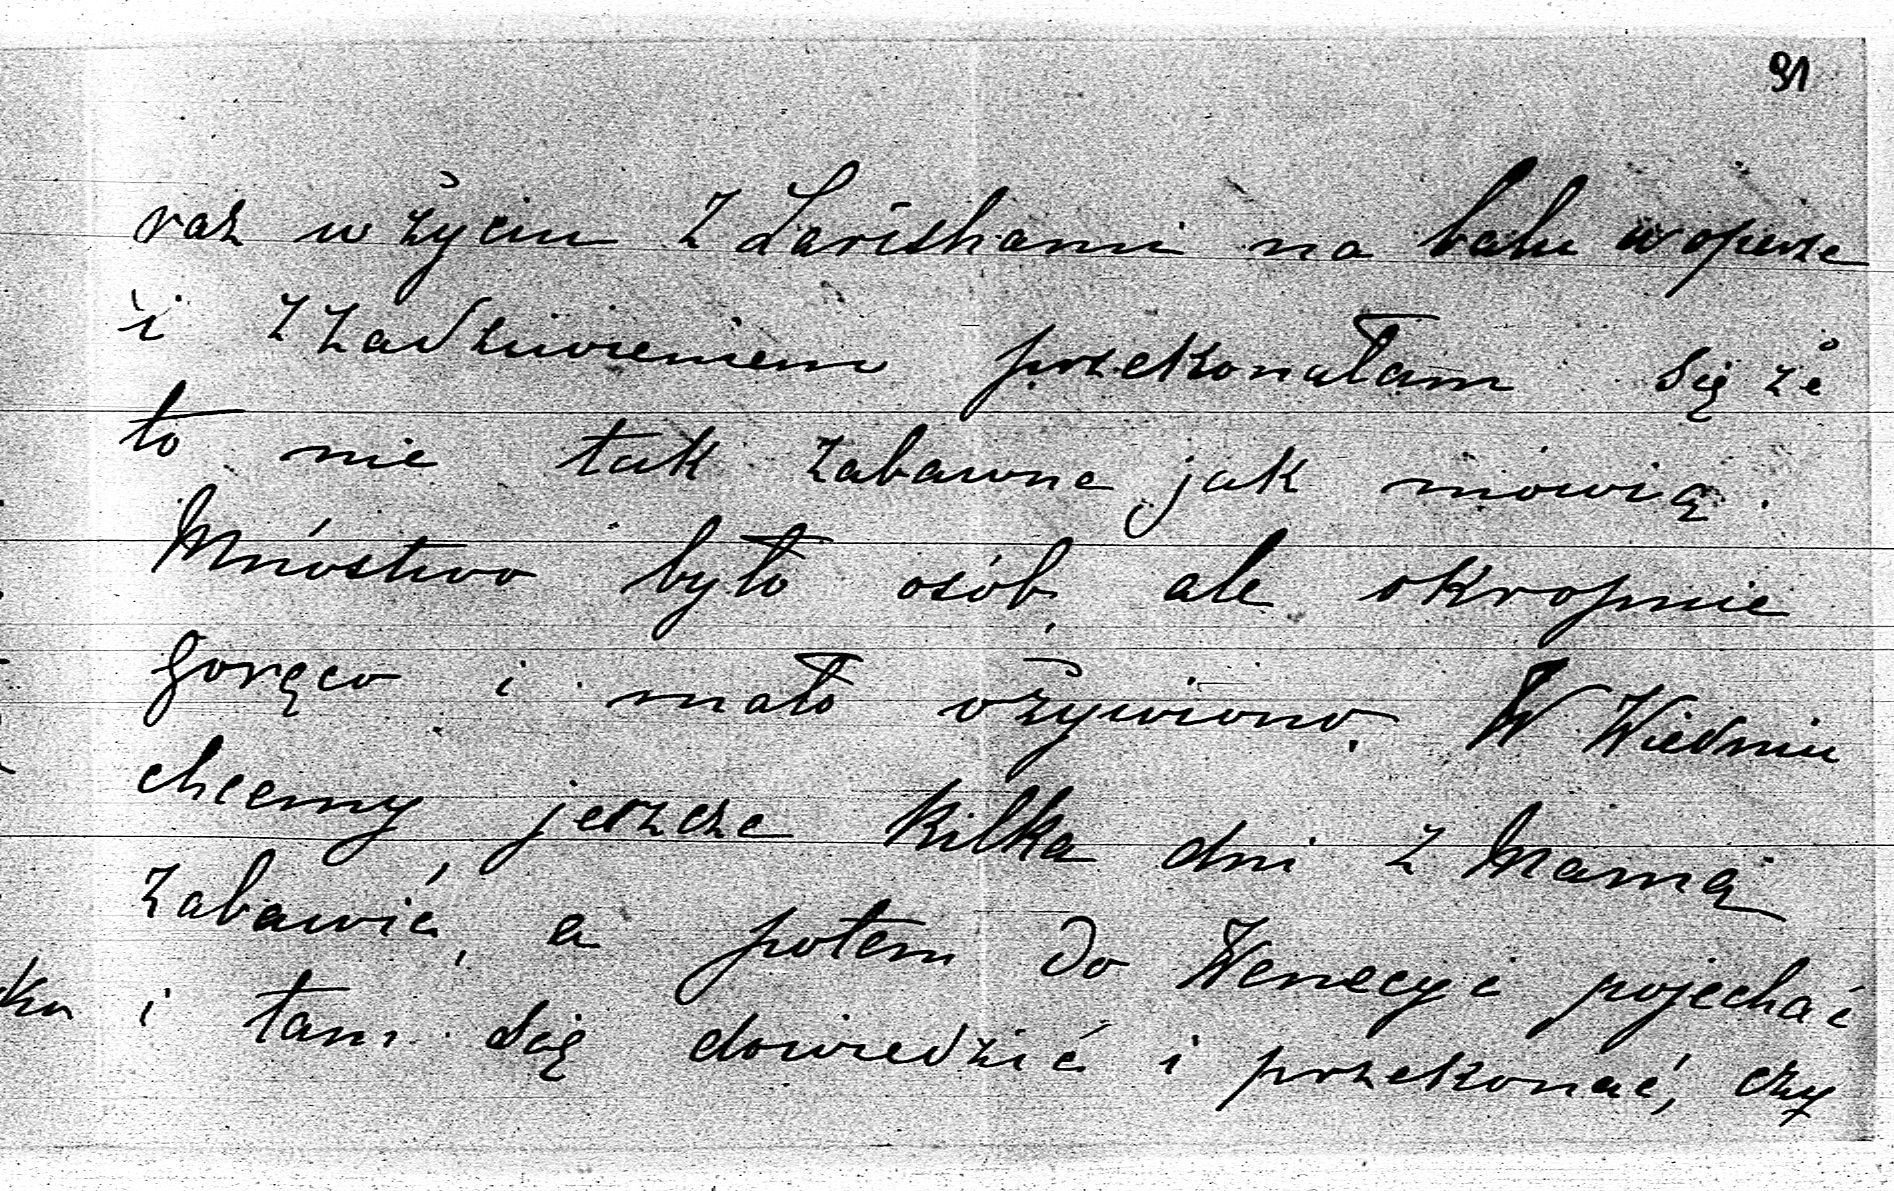 91
raz w życiu z Larishami na balu w operze
i z zadziwieniem przekonałam się że
to nie tak zabawne jak mówią.
Mnóstwo było osób, ale okropnie
gorąco i mało ożywiono. W Wiedniu
chcemy jeszcze kilka dni z Mamą
zabawić, a potem do Wenecyi pojechać
i tam się dowiedzić i przekonać, czy